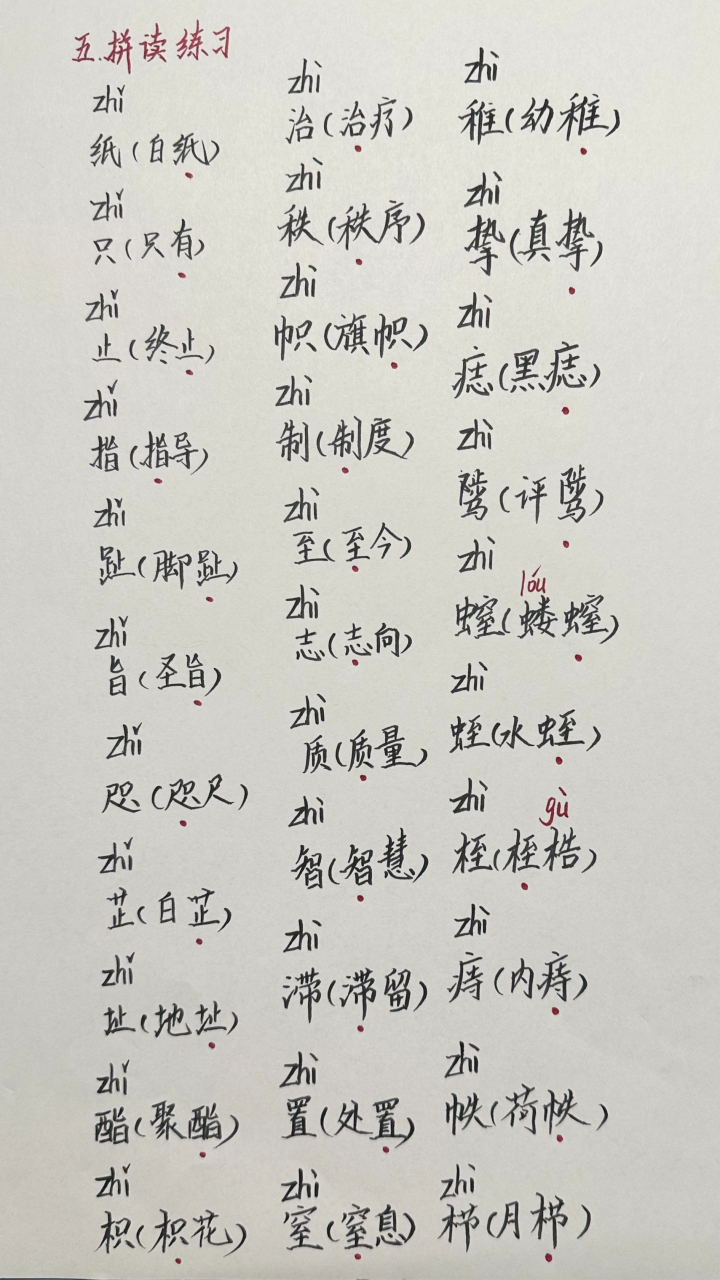 五.拼读练习
zhǐ
纸(白纸)
zhǐ
只(只有)
zhǐ
止(终止)
zhǐ
指(指导)
zhǐ
趾(脚趾)
zhǐ
旨(圣旨)
zhǐ
咫(咫尺)
zhǐ
芷(白芷)
zhǐ
址(地址)
zhǐ
酯(聚酯)
zhǐ
枳(枳花)
zhì
治(治疗)
zhì
秩(秩序)
zhì
帜(旗帜)
zhì
制(制度)
zhì
至(至今)
zhì
志(志向)
zhì
质(质量)
zhì
智(智慧)
zhì
滞(滞留)
zhì
置(处置)
zhì
窒(窒息)
zhì
稚(幼稚)
zhì
挚(真挚)
zhì
痣(黑痣)
zhì
骘(评骘)
zhì
lóu
螲(蝼螲)
zhì
蛭(水蛭)
zhì
gù
桎(桎梏)
zhì
痔(内痔)
zhì
帙(荷帙)
zhì
栉(月栉)